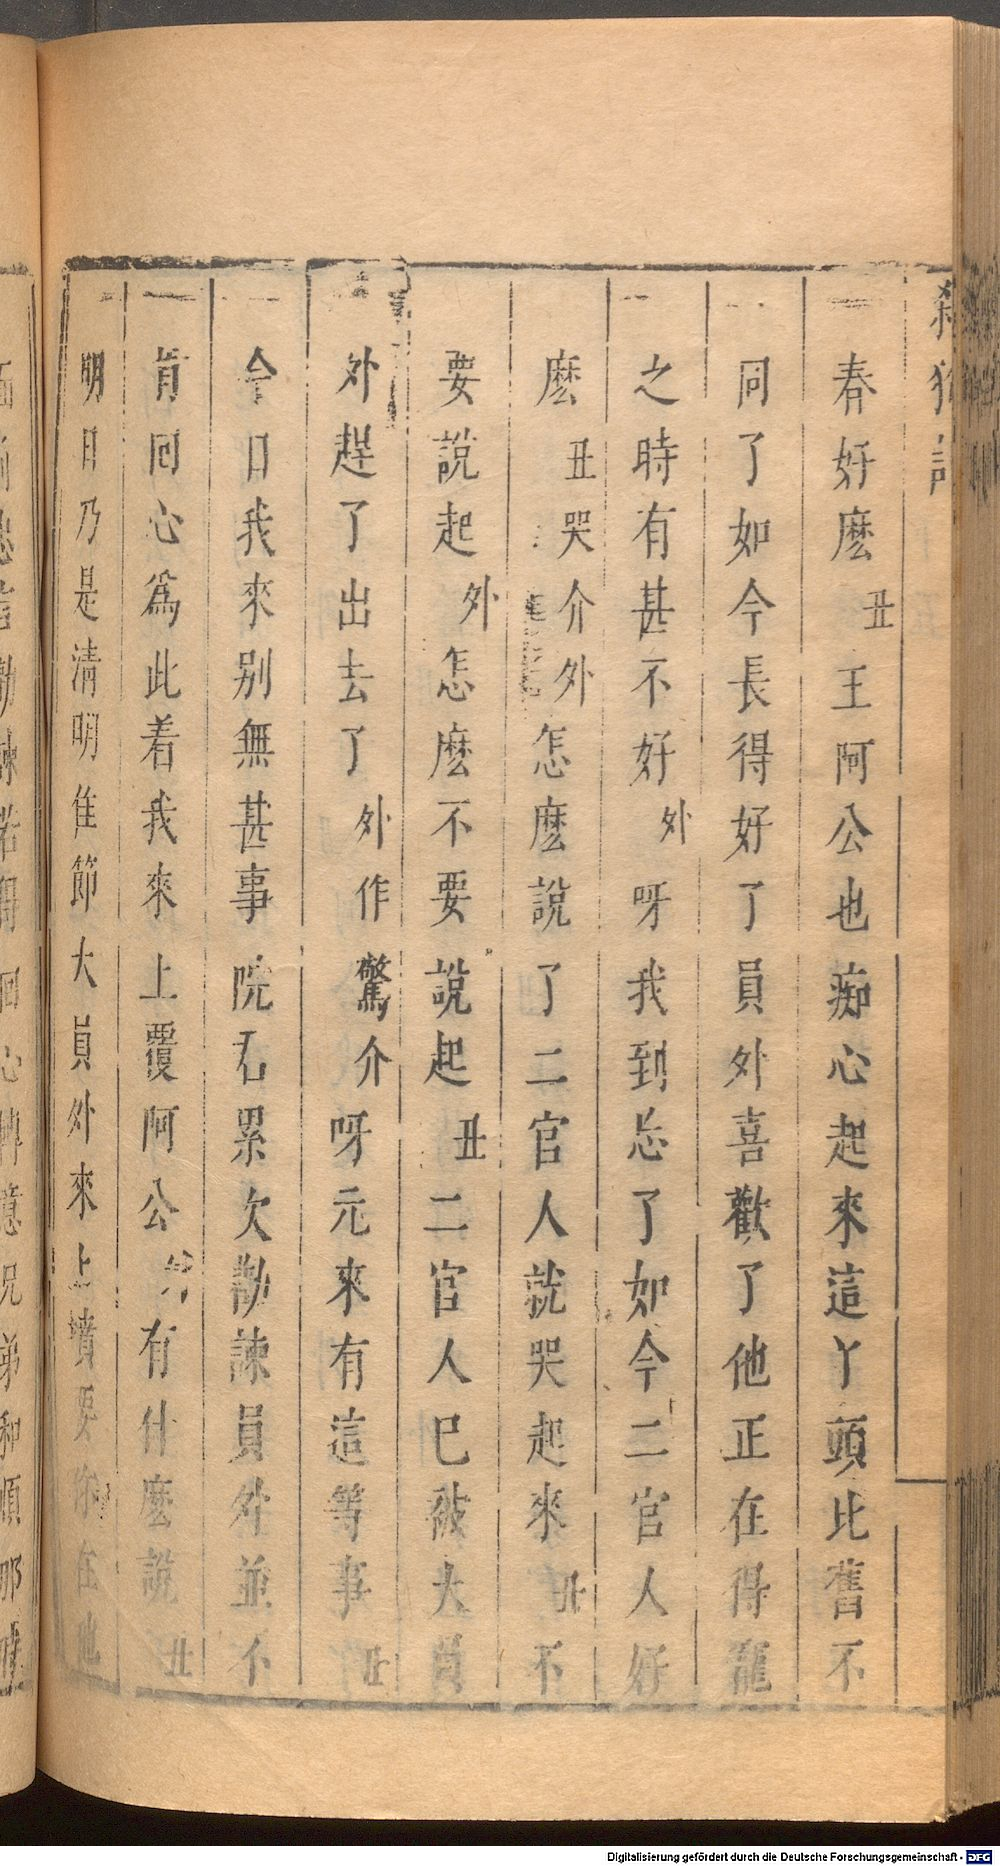 殺狗記
春好麽丑王阿公也痴心起來這丫頭比舊不
同了如今長得好了員外喜歡了他正在得寵
之時有甚不好外呀我到忘了如今二官人好
麽丑哭介外怎麽說了二官人就哭起來丑不
要說起外怎麽不要說起丑二官人已被大員
外趕了出去了外作驚介呀元來有這等事丑
今日我來别無甚事院君累欠勸諫員外並不
肯回心爲此着我來上覆阿公外有什麽說丑
明日乃是清明佳節大員外來上墳要你在他
面前
勸諫若得回心轉意兄弟和順那時
Digitalisierung gefördert durch die Deutsche Forschungsgemeinschaft - DFG